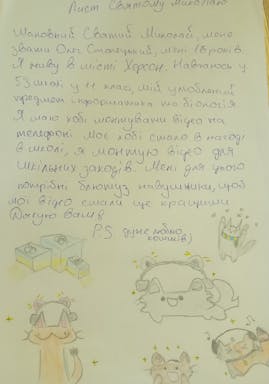 Лист Святому Миколаю
Шановний Святий Миколай, мене
звати Олег, мені років.
Я живу в місті Херсон. Навчаюсь у
53 школі у класі, мій улюблений
предмет інформатика та біологія
Я маю хобі монтувати відео на
телефоні. Моє хобі стало в нагоді
в школі, я монтую відео для
шкільних заходів. Мені для цього
потрібні блютуз навушники, щоб
мої відео стали ще кращими
Дякую вам
P.S дуже люблю
котиків)